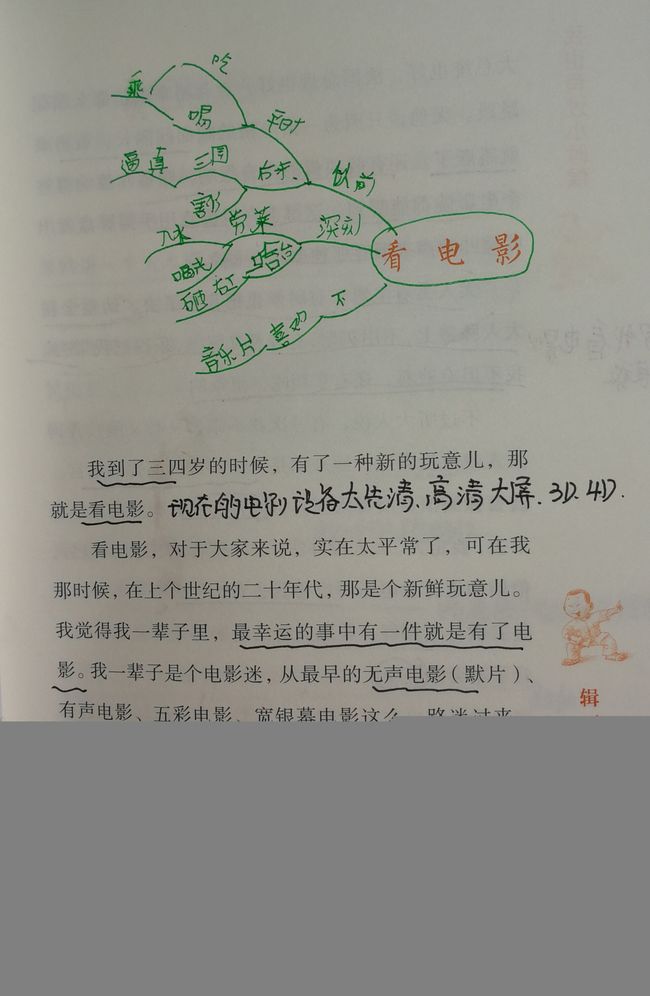 吃
乘
喝
平时
逼真 三国
后来
以前
割
劳莱
深刻
入水
哈台
喝光
砸缸
看电影
不
喜欢
音乐片
我到了三四岁的时候，有了一种新的玩意儿，那
就是看电影。现在的电影设备太先进、高清大屏、3D、4D.
看电影，对于大家来说，实在太平常了，可在我
那时候，在上个世纪的二十年代，那是个新鲜玩意儿。
我觉得我一辈子里，最幸运的事中有一件就是有了电
影。我一辈子是个电影迷，从最早的无声电影（默片）、
有声电影、五彩电影、宽银幕电影这么一路迷过来
辑